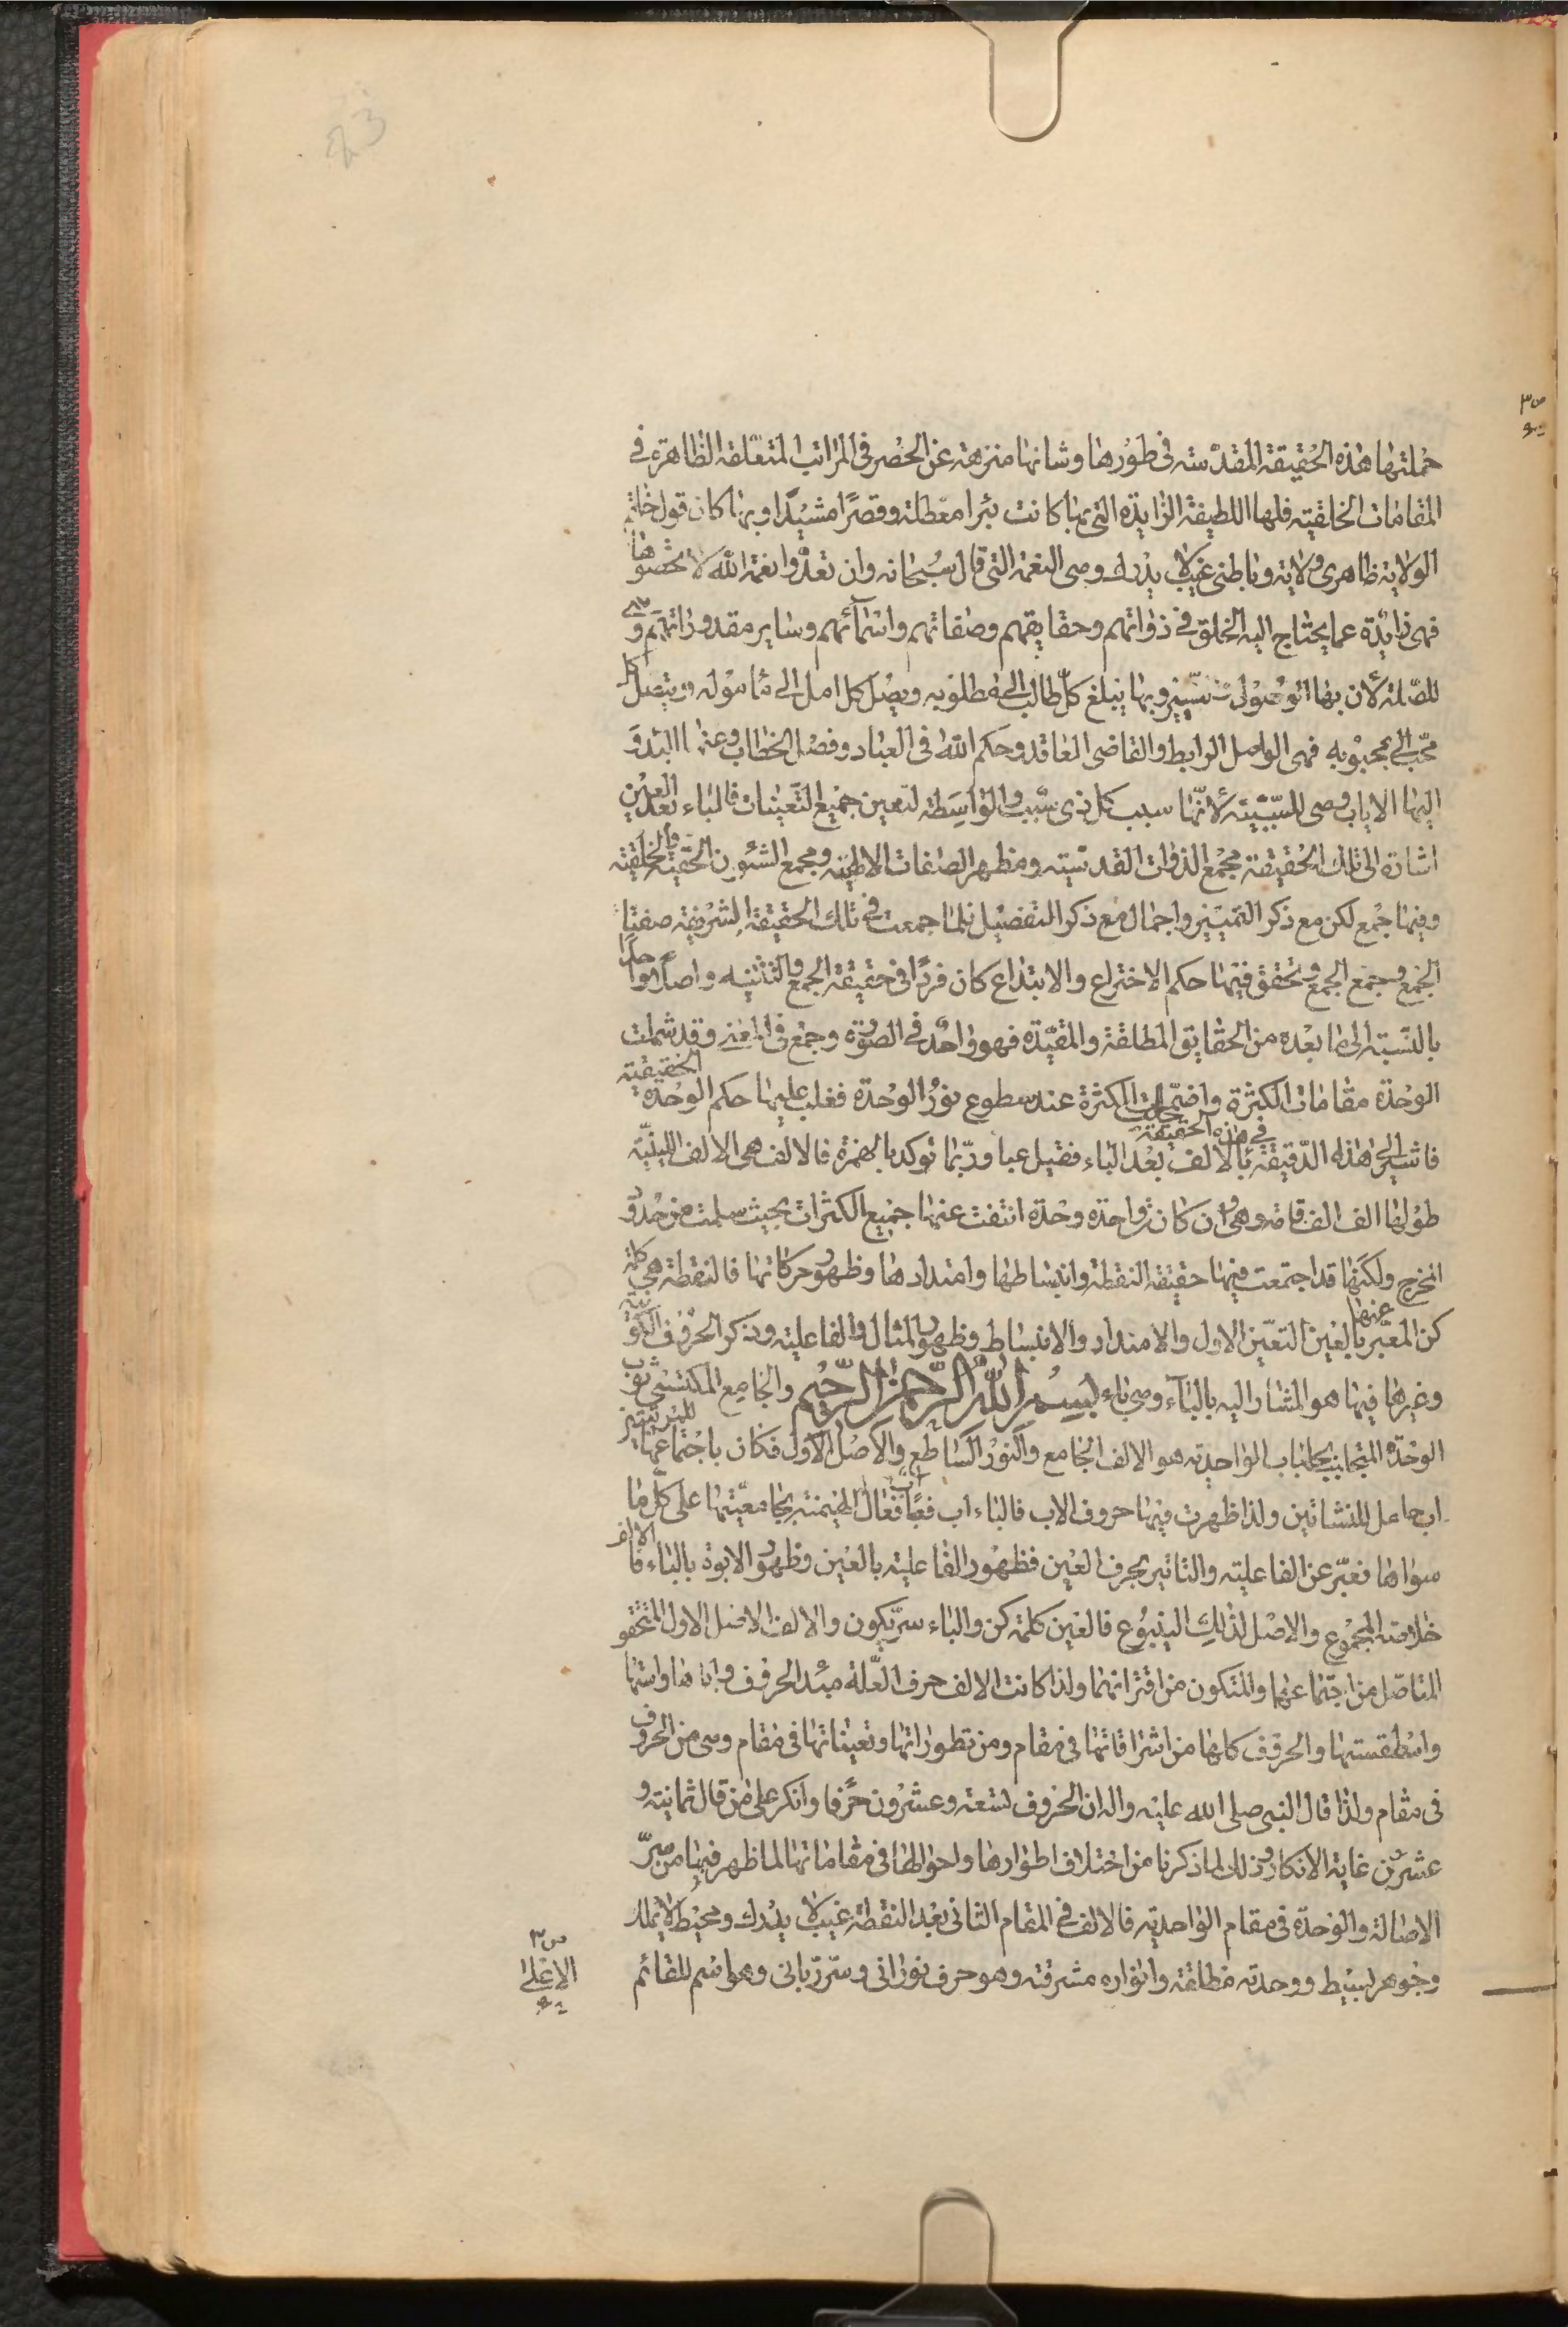 23
ص٣
جملتها هذه الحقيقة المقدسته فى طورها وشانها منزهة عن الحصر فى المراتب المتعلقة الظاهرة فى
المقامات الخلقيته فلها اللطيفة الزايدة التى بها كانت بئرا معطلة وقصرًا مشيدًا وبها كان قول خاتم
الولاية ظاهرى ولاية وباطنى غيب لا يدرك وهى النعمة التى قال سبحانه وان تعدّوا نعمة الله لا تحصوها
فهى زايدة عما يحتاج اليه الخلق فى ذواتهم وحقايقهم وصفاتهم واسمآئهم وساير مقدوراتهم وهى
للصّلة لأن بها الوصول وبها يبلغ كلّ طالب الى مطلوبه ويصل كل امل الى مأموله ويتصل كل
محّب الى محبوبه فهى الواصل الرابط والقاضى العاقد وحكم الله فى العباد وفصل الخطاب وعنها البدؤ
اليها الاياب وهى للسّببيّته لأنّها سبب كل ذى سبب والواسطة لتعين جميع التّعينات فالباء بعد العين
اشارة الى تلك الحقيقة مجمع الذوات القدسيته ومظهر الصفات الالهيته ومجمع الشئون الحقيته والخلقيته
وفيها جمع لكن مع ذكر التميّز واجمال مع ذكر التفصيل فلما جمعت فى تلك الحقيقة الشريفة صفتا
الجمع وجمع الجمع وتحقق فيها حكم الاختراع والابتداع كان فردًا فى حقيقة الجمع والتثنيه واصلًا واحدًا
بالنّسبة الى ما بعده من الحقايق المطلقة والمقيّدة فهو واحد فى الصورة وجمع فى المعنى وقد شملت
الوحدة مقامات الكثرة واضمحلت الكثرة عند سطوع نور الوحدة فغلب عليها حكم الوحدة الحقيقيته
فى هذه الحقيقة
فاشير الى هذه الدّقيقة بالالف بعد الباء فقيل عبا وربّما توكد بالهمزة فالالف هى الالف اللينيّه
طولها الف الف قامة وهى وان كانت واحدة وحدة انتفت عنها جميع الكثرات بحيث سلمت من حدود
المخرج ولكنّها قد اجتمعت فيها حقيقة النقطة وانبساطها وامتدادها وظهور حركاتها فالنقطة هى كلمة
كن المعبّر عنها بالعين التعيّن الاول والامتداد والانبساط وظهور المثال والفاعليته وذكر الحروف الكونيّه
وغيرها فيها هو المشار اليه بالبآء وهى باء بسم الله الرّحمن الرّحيم والجامع المكتسى ثوب
الوحدة المتجلبب بجلباب الواحديته هو الالف الجامع والنور السّاطع والأصل الأول فكان باجتماعها للمرتبتين
اب حامل للنشاتين ولذا ظهرت فيها حروف الاب فالباء اب فعبا فعال المهيمنته بجامعيّتها على كلّ ما
سواها فعبّر عن الفاعليته والتاثير بحرف العين فظهور الفاعليته بالعين وظهور الابوة بالباء فالالف
خلاصة المجموع والاصل لذلك الينبوع فالعين كلمة كن والباء سرّ يكون والالف الاصل الاول المتحقق
المتاصّل من اجتماعها والمتكون من اقترانهما ولذا كانت الالف حرف العلّة مبدء الحروف واباها واسّها
واسطقسيها والحروف كلها من اشراقاتها فى مقام ومن تطوراتها وتعيناتها فى مقام وهى من الحروف
فى مقام ولذا قال النبى صلى الله عليه واله ان الحروف تسعة وعشرون حرفا وانكر على من قال ثمانيته و
عشرين غاية الانكار وذلك لما ذكرنا من اختلاف اطوارها واحوالها فى مقاماتها لما ظهر فيها من سرّ
الاصالة والوحدة فى مقام الواحديته فالالف فى المقام الثانى بعد النقطة غيب لا يدرك ومحيط لا يملك
وجوهر بسيط ووحدته مطلقة وانواره مشرقة وهو حرف نورانى وسرّ ربّانى وهو اسم للقائم
ص٣
الاعلى